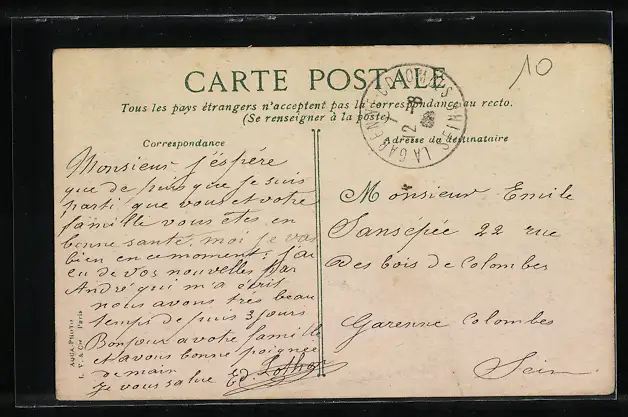 10
CARTE POSTALE
Tous les pays étrangers n'acceptent pas la correspondance au recto.
(Se renseigner à la poste)
Correspondance
Adresse du destinataire
LA GARENNE-COLOMBES
SEINE
Monsieur j'éspére
que de puis que je suis
parti que vous et votre
famille vous êtes en
bonne santé, moi je vas
bien en ce moment, j'ai
eu de vos nouvelles par
André qui m'a écrit
nous avons très beau
temps de puis 3 jours
Bonjour a votre famille
et a vous bonne poignée
de main
Je vous salue Ed.
Monsieur Emile
Sansépée 22 rue
des bois de Colombes
Garenne Colombes
Sein
AQUA-PHOTO
L. V. & Cie Paris